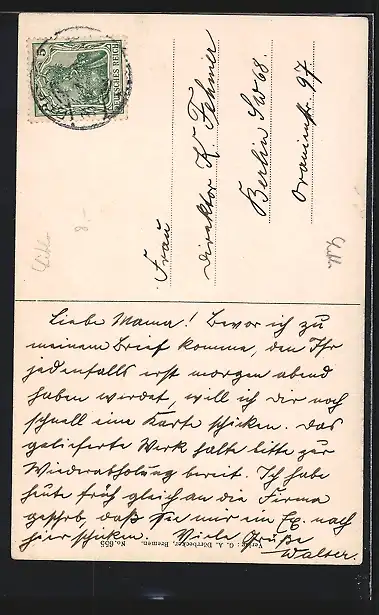 5
DEUTSCHES REICH
Frau
Direktor K. Fehmer
Berlin SW 68.
Oranienstr. 97.
8.-
Liebe Mama! Bevor ich zu
meinem Brief komme, den Ihr
jedenfalls erst morgen abend
haben werdet, will ich Dir noch
schnell eine Karte schicken. Das
gelieferte Werk halte bitte zur
Wiederabholung bereit. Ich habe
heute früh gleich an die Firma
geschrb, daß sie mir ein Ex. nach
hier schicken. Viele Grüße
Walter.
Verlag: G. A. Dörrbecker, Bremen. No. 655